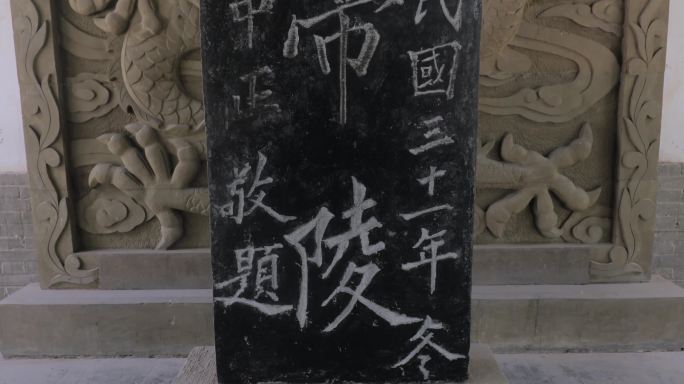 民國三十一年冬
帝陵
中正敬題